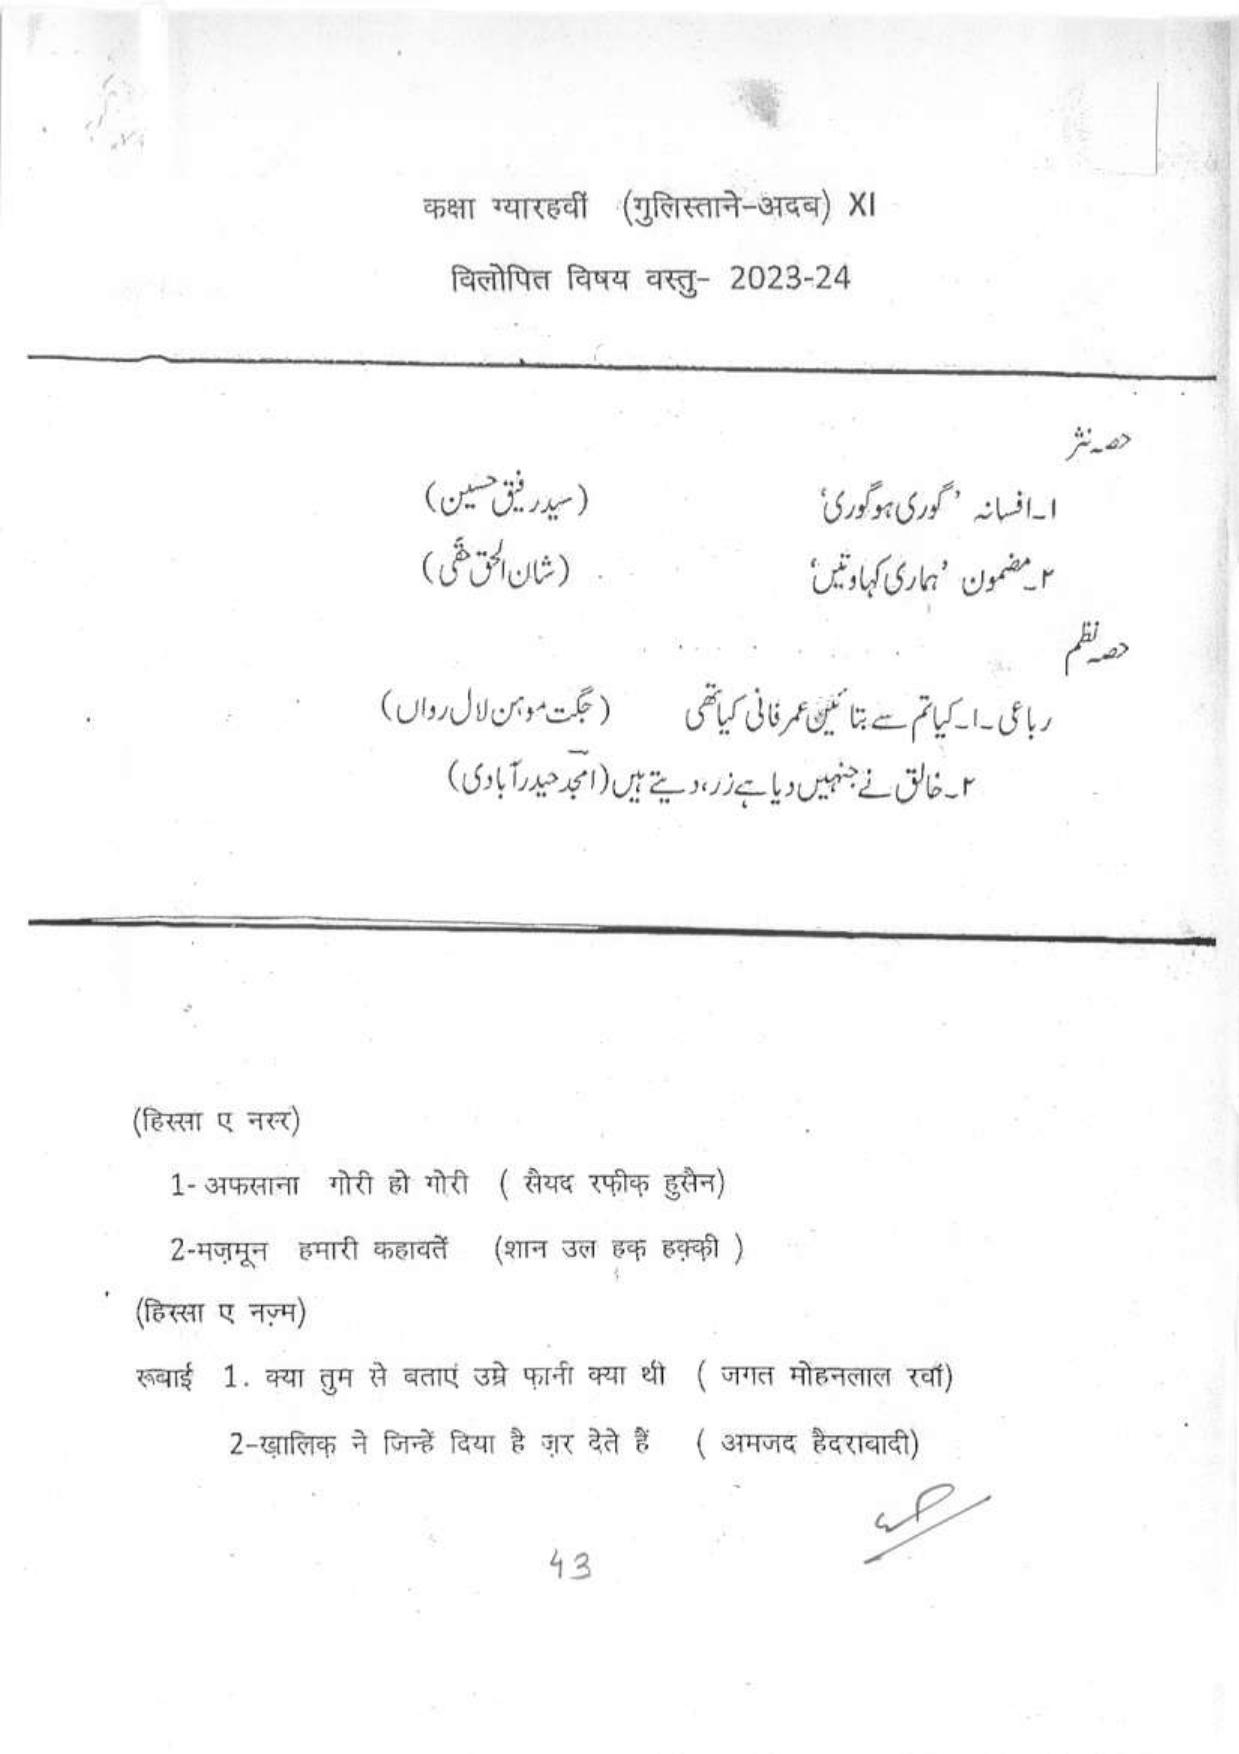 कक्षा ग्यारहवीं (गुलिस्ताने-अदब) XI
विलोपित विषय वस्तु- 2023-24
حصہ نثر
۱۔افسانہ ’گوری ہو گوری‘ (سیدرفیق حسین)
۲۔مضمون ’ہماری کہاوتیں‘ (شان الحق حقّی)
حصہ نظم
رباعی۔۱۔کیا تم سے بتائیں عمر فانی کیا تھی (جگت موہن لال رواں)
۲۔خالق نے جنہیں دیا ہے زر، دیتے ہیں (امجد حیدرآبادی)
(हिस्सा ए नस्र)
1- अफसाना गोरी हो गोरी ( सैयद रफ़ीक़ हुसैन)
2-मज़मून हमारी कहावतें (शान उल हक़ हक़्क़ी )
(हिस्सा ए नज़्म)
रूबाई 1. क्या तुम से बताएं उम्रे फ़ानी क्या थी ( जगत मोहनलाल रवाँ)
2-ख़ालिक़ ने जिन्हें दिया है ज़र देते हैं ( अमजद हैदराबादी)
43